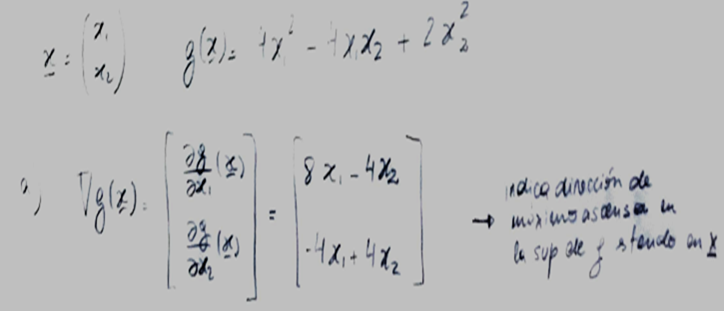 x = (x₁ x₂) g(x) = 4x₁² - 4x₁x₂ + 2x₂²
a) ∇g(x) = [∂g/∂x₁ (x) ∂g/∂x₂ (x)] = [8x₁ - 4x₂ -4x₁ + 4x₂]
→ indica dirección de
máximo ascenso en
la sup de g stando en x